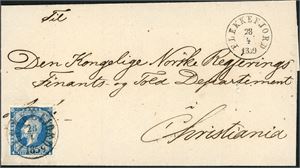 Til
FLEKKEFJORD
28
4
1859
Den Kongelige Norske Regjerings
Finants- og Told Departement
Christiania
28
4
1859